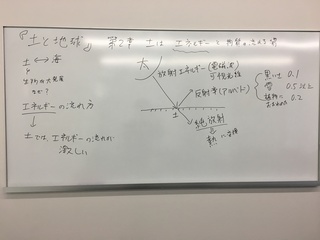 『土と地球』 第2章 土は エネルギーと物質の流れる場
土 ⟷ 海
生物の大発展
なぜ?
エネルギーの流れ方
↓
土では、エネルギーの流れが
激しい
太
放射エネルギー (電磁波)
可視光線
反射率(アルベド)
黒い土 0.1
雪 0.5以上
0.2
土
純放射
↓
熱に変換